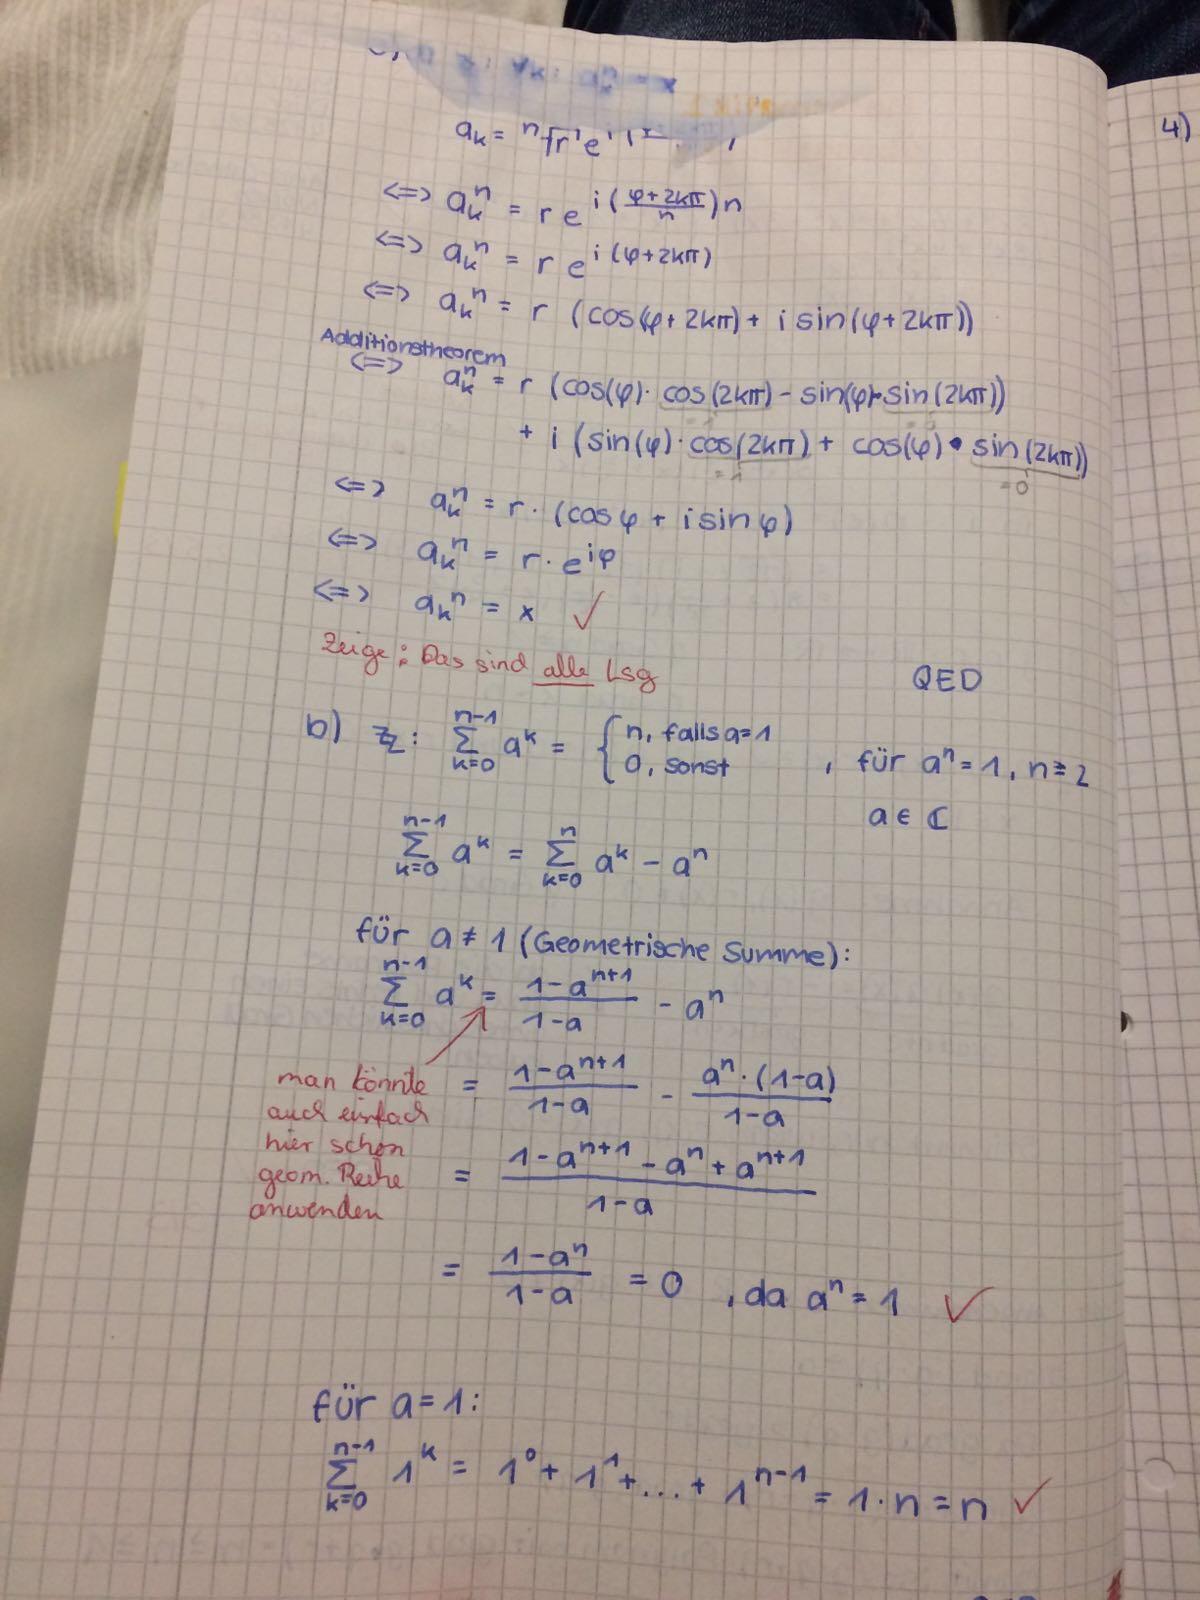 a_k = ⁿ√r e^i
⇔ a_k^n = r e^{i(\frac{φ+2kπ}{n})n}
⇔ a_k^n = r e^{i(φ+2kπ)}
⇔ a_k^n = r (cos(φ+2kπ) + i sin(φ+2kπ))
Additionstheorem
⇔ a_k^n = r (cos(φ)· cos(2kπ) - sin(φ)·sin(2kπ))
+ i (sin(φ)· cos(2kπ) + cos(φ)·sin(2kπ))
=1
=0
⇔ a_k^n = r · (cos φ + i sin φ)
⇔ a_k^n = r · e^{iφ}
⇔ a_k^n = x ✓
Zeige: Das sind alle Lsg
QED
b) ZZ: \sum_{k=0}^{n-1} a^k = { n, falls a=1
0, sonst , für a^n = 1, n ≥ 2
a ∈ ℂ
\sum_{k=0}^{n-1} a^k = \sum_{k=0}^{n} a^k - a^n
für a ≠ 1 (Geometrische Summe):
\sum_{k=0}^{n-1} a^k = \frac{1-a^{n+1}}{1-a} - a^n
man könnte
auch einfach
hier schon
geom. Reihe
anwenden
= \frac{1-a^{n+1}}{1-a} - \frac{a^n·(1-a)}{1-a}
= \frac{1-a^{n+1}-a^n+a^{n+1}}{1-a}
= \frac{1-a^n}{1-a} = 0 , da a^n = 1 ✓
für a = 1:
\sum_{k=0}^{n-1} 1^k = 1^0 + 1^1 + ... + 1^{n-1} = 1·n = n ✓
4)